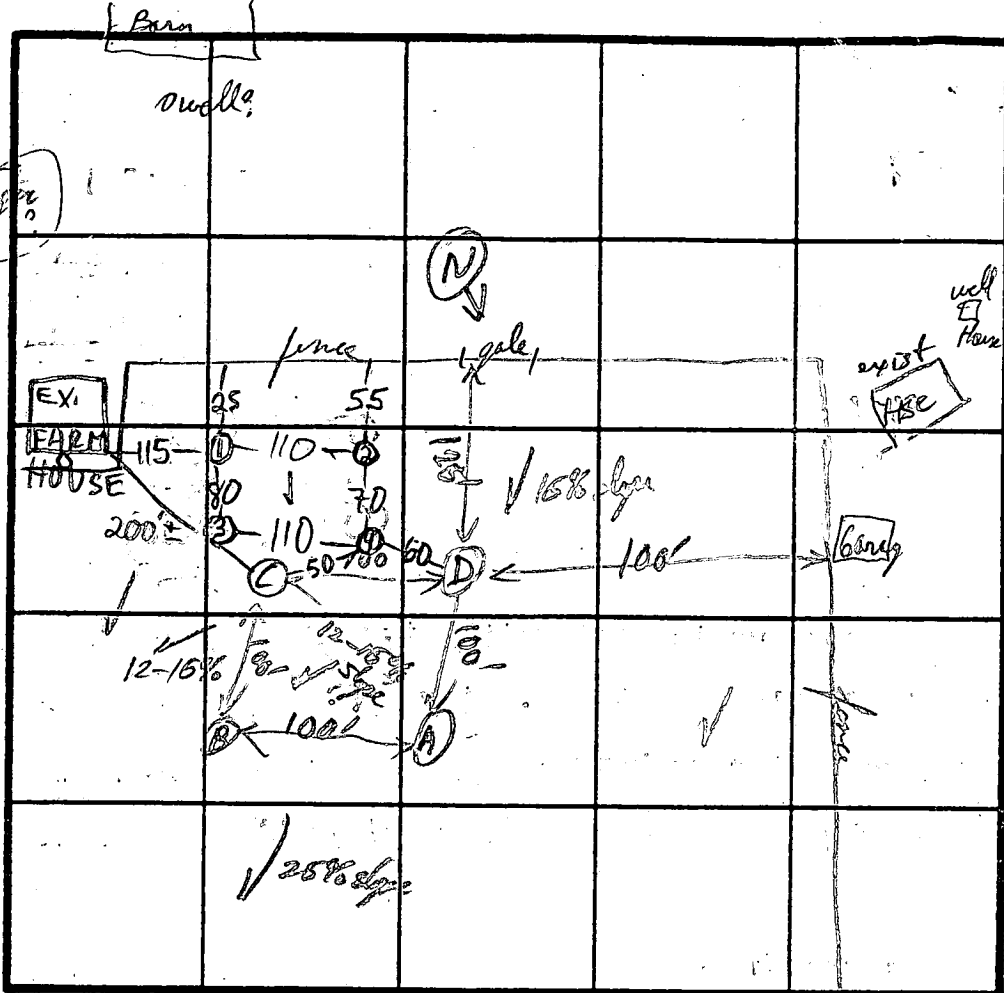 Barn
well?
N
well
House
fence
gate
exist
HSE
EX.
FARM
HOUSE
25
55
115
1
110
2
80
70
15% slope
200'±
3
110
4
50
60
C
D
100'
Garag
12-15%
100'
slope
B
100'
A
fence
25% slope